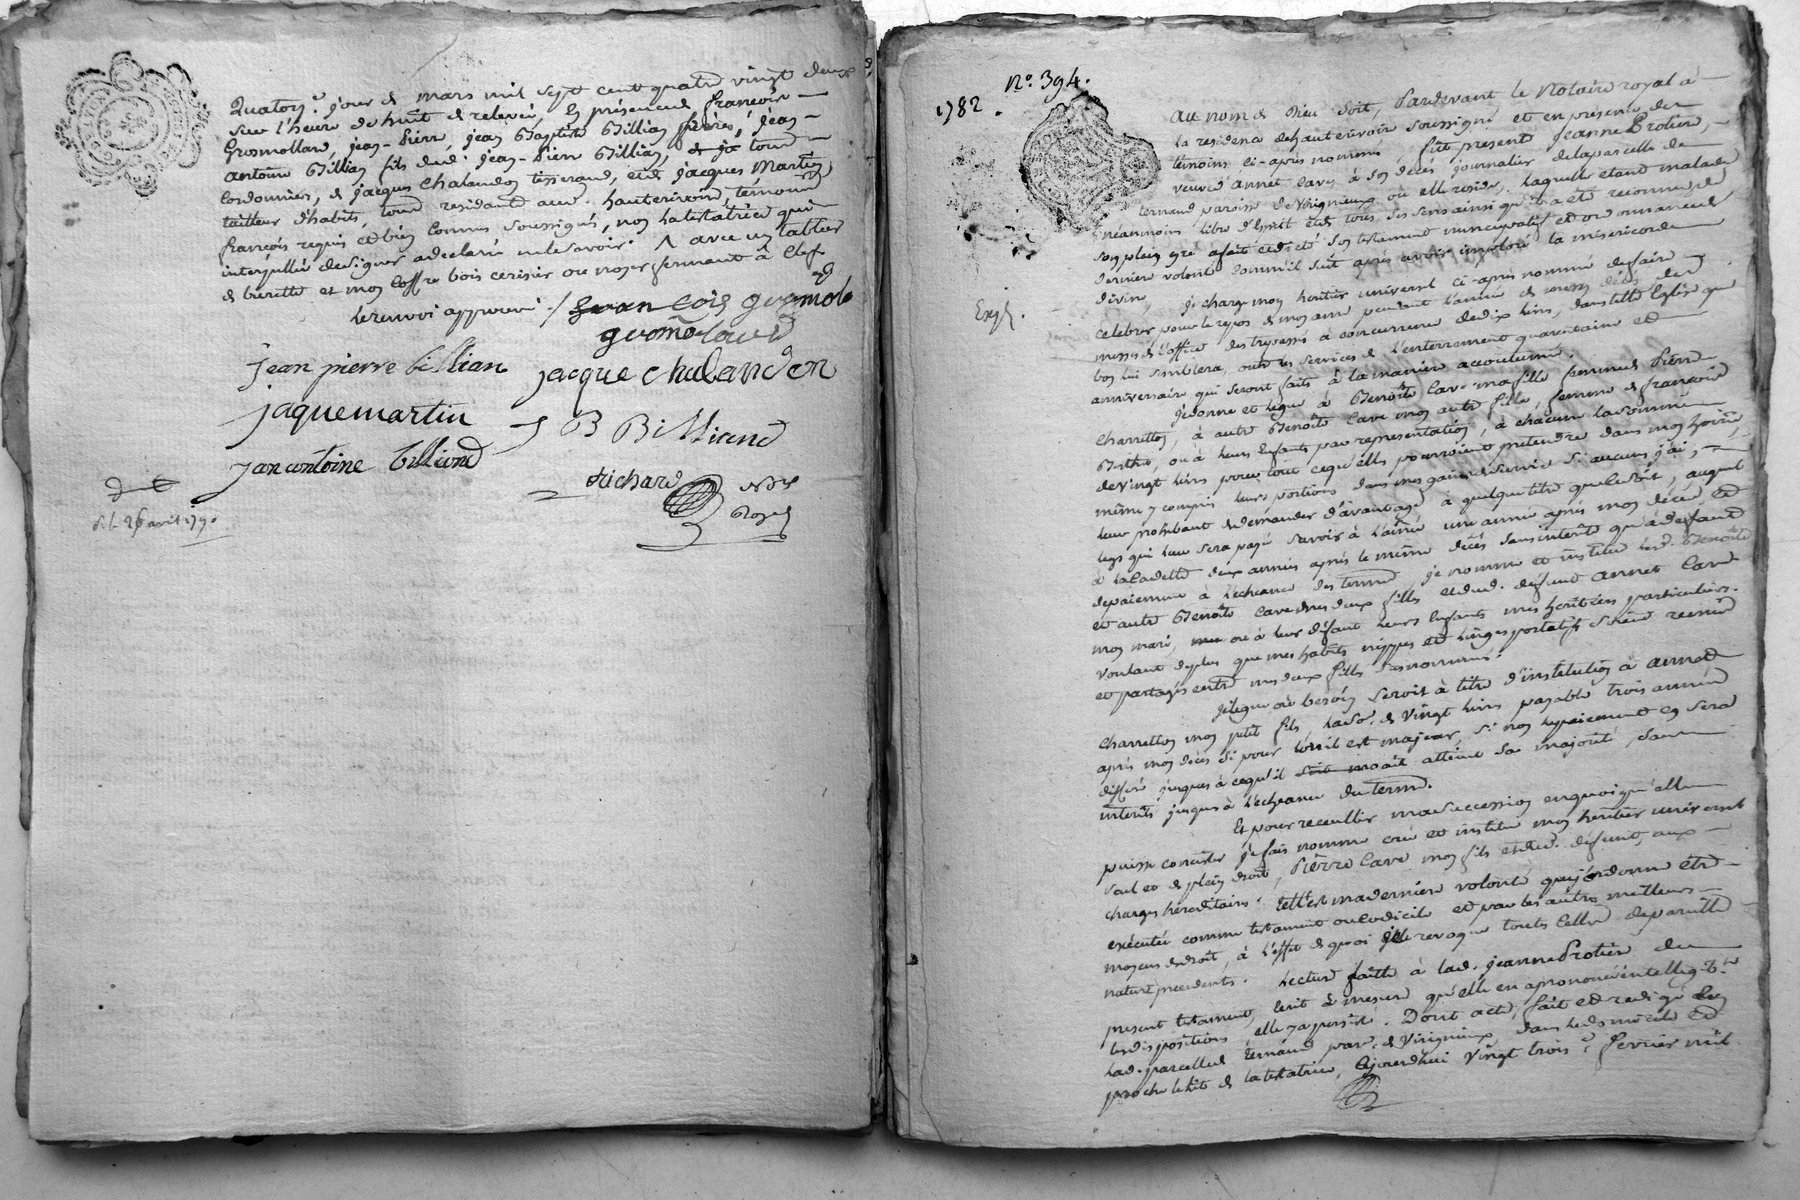 Quatorz.e jour de mars mil sept cent quatre vingt deux
sur l'heure de huit de relevée, en présence de françois
Grosmollard, jean-Pierre, jean Baptiste Billian frères, jean-
antoine Billian fils dud. jean-Pierre Billian, tous
Cordonniers, de jacques Chalandon tisserand, et de jacques Martin
tailleur d'habits, tous residant aud. hauterivoire, témoins
françois requis et bien connus soussignés, non la testatrice qui
interpellée de signer a declaré ne le savoir. avec un tablier
de burette et mon coffre bois cerisier ou noyer fermant à clef
le renvoi approuvé ./.
fran cois gromola
gromolard
jean pierre billian jacque chalanden
jaque martin J B Billiand
jan antoine billiand
Richard
Not.re
Royal
d. l. 26 avril 1790
N.o 394.
1782.
Au nom de Dieu soit, Pardevant le Notaire royal à
la residence de hauterivoire soussigné et en présence des
temoins ci-après nommés fut present Jeanne Protier,
veuve d'Annet Cave à son décès journalier de la parcelle de
ternaud paroisse de Virigneux où elle reside, laquelle etant malade
neanmoins libre d'esprit et de tous ses sens ainsi qu'il a eté reconnu, de
son plein gré a fait et dicté son testament nuncupatif et ordonnance de
derniere volonté comme il suit après avoir imploré la misericorde
divine, je charge mon heritier universel ci-après nommé de faire
Exp.
celebrer pour le repos de mon ame pendant l'année de mon décès des
messes de l'office des trepassés à concurrence de dix livres, dans telle Eglise que
bon lui semblera, outre les services de l'enterrement quarantaine et
anniversaire qui seront faits à la manière accoutumée.
Je donne et legue à Benoîte Cave ma fille femme de Pierre
Charretton, à autre Benoîte Cave mon autre fille, femme de françois
Berthe, ou à leurs Enfants par representation, à chacune la somme
de vingt livres pour tout ce qu'elles pourroient pretendre dans mon hoirie,
même y compris leurs portions dans mes gains de survie si aucuns j'ai,
leur prohibant de demander d'avantage à quelque titre que ce soit, auquel
legs qui leur sera payé savoir à l'aînée une année après mon décès et
à la cadette deux années après le même décès sans interêt qu'à deffaut
de paiement à l'echeance des termes je nomme et institue lesd. Benoîte
et autre Benoîte Cave mes deux filles et dud. defunt annet Cave
mon mari, ou à leur défaut leurs Enfants mes heritiers particuliers.
Voulant de plus que mes habits nippes et linges portatifs soient remis
et partagés entre mes deux filles susnommées.
Je legue où besoin seroit à titre d'institution à annet
Charretton mon petit fils, la so.e de vingt livres payable trois années
après mon décès si pour lors il est majeur, si non le paiement en sera
differé jusques à ce qu'il soit atteint sa majorité, sans
interêts jusques à l'echeance du terme.
Et pour recueillir ma succession en quoi qu'elle
puisse consister je fais nomme crée et institue mon heritier universel
seul et de plein droit, Pierre Cave mon fils et dud. defunt, aux
charges hereditaires. telle est ma derniere volonté que j'ordonne être
exécutée comme testament ou codicile et par les autres meilleurs
moyens de droit, à l'effet de quoi je revoque toutes celles de pareille
nature precedents. Lecture faite à lad. jeanne Protier du
present testament ecrit à mesure qu'elle en a prononcé intelligb.t
les dispositions elle y a persisté. Dont acte, fait et redigé en
lad. parcelle de Ternaud par.e de Virigneux, dans led. domicile et
proche le lit de la testatrice, Cejourdhui vingt trois.e fevrier mil